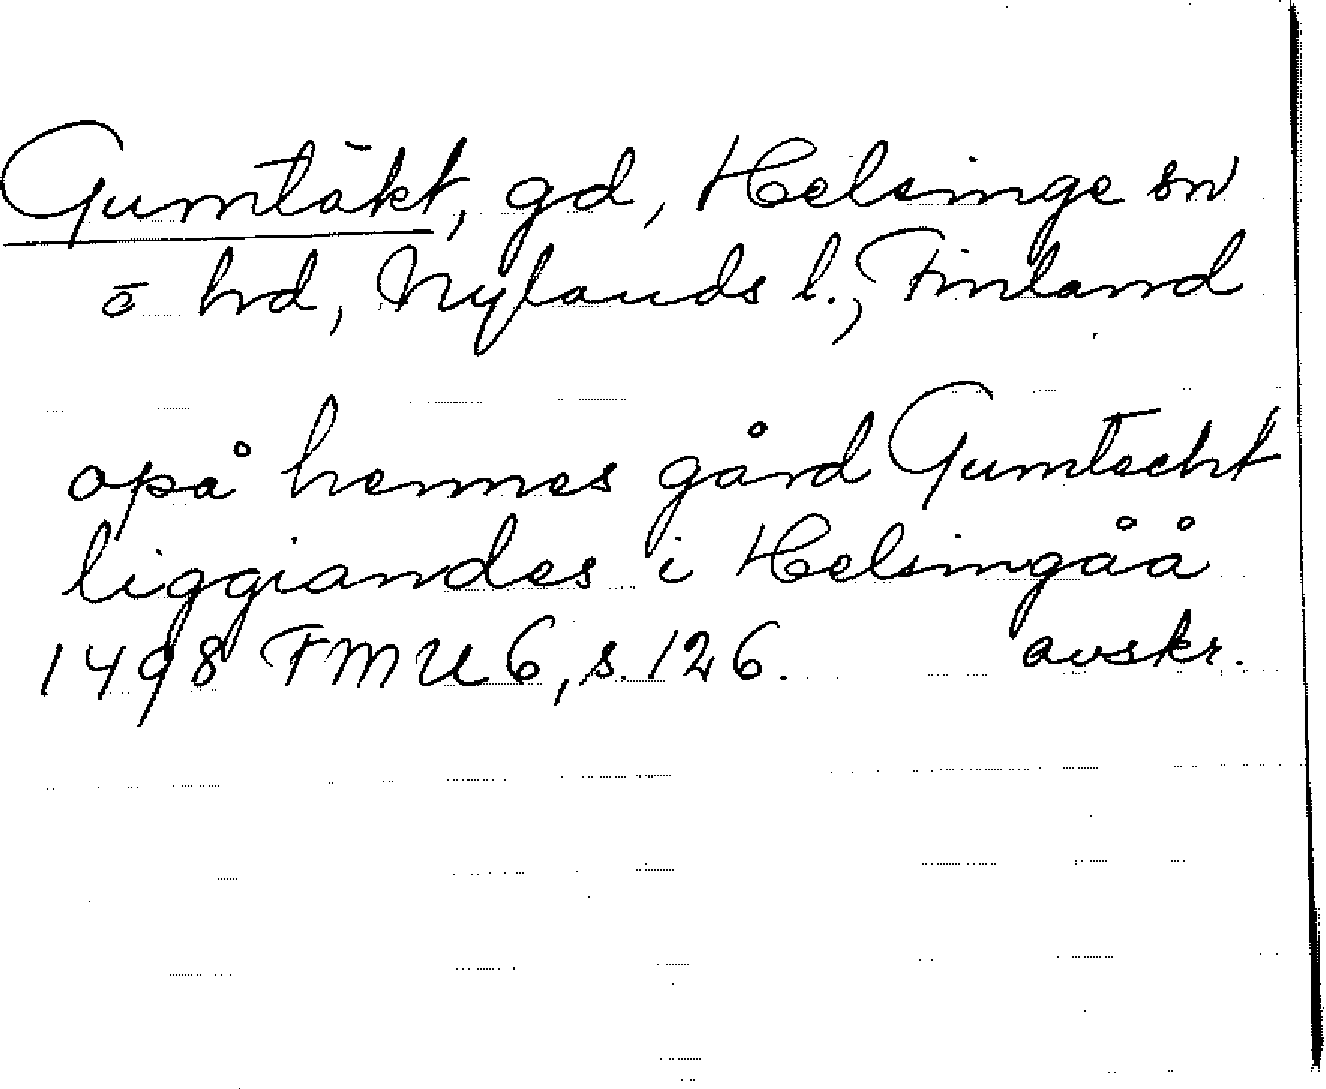 Gumtäkt, gd, Helsinge sn
o hd, Nylands l., Finland
opå hennes gård Gumtecht
liggiandes i Helsingåå
1498 FMU 6, s. 126. avskr.